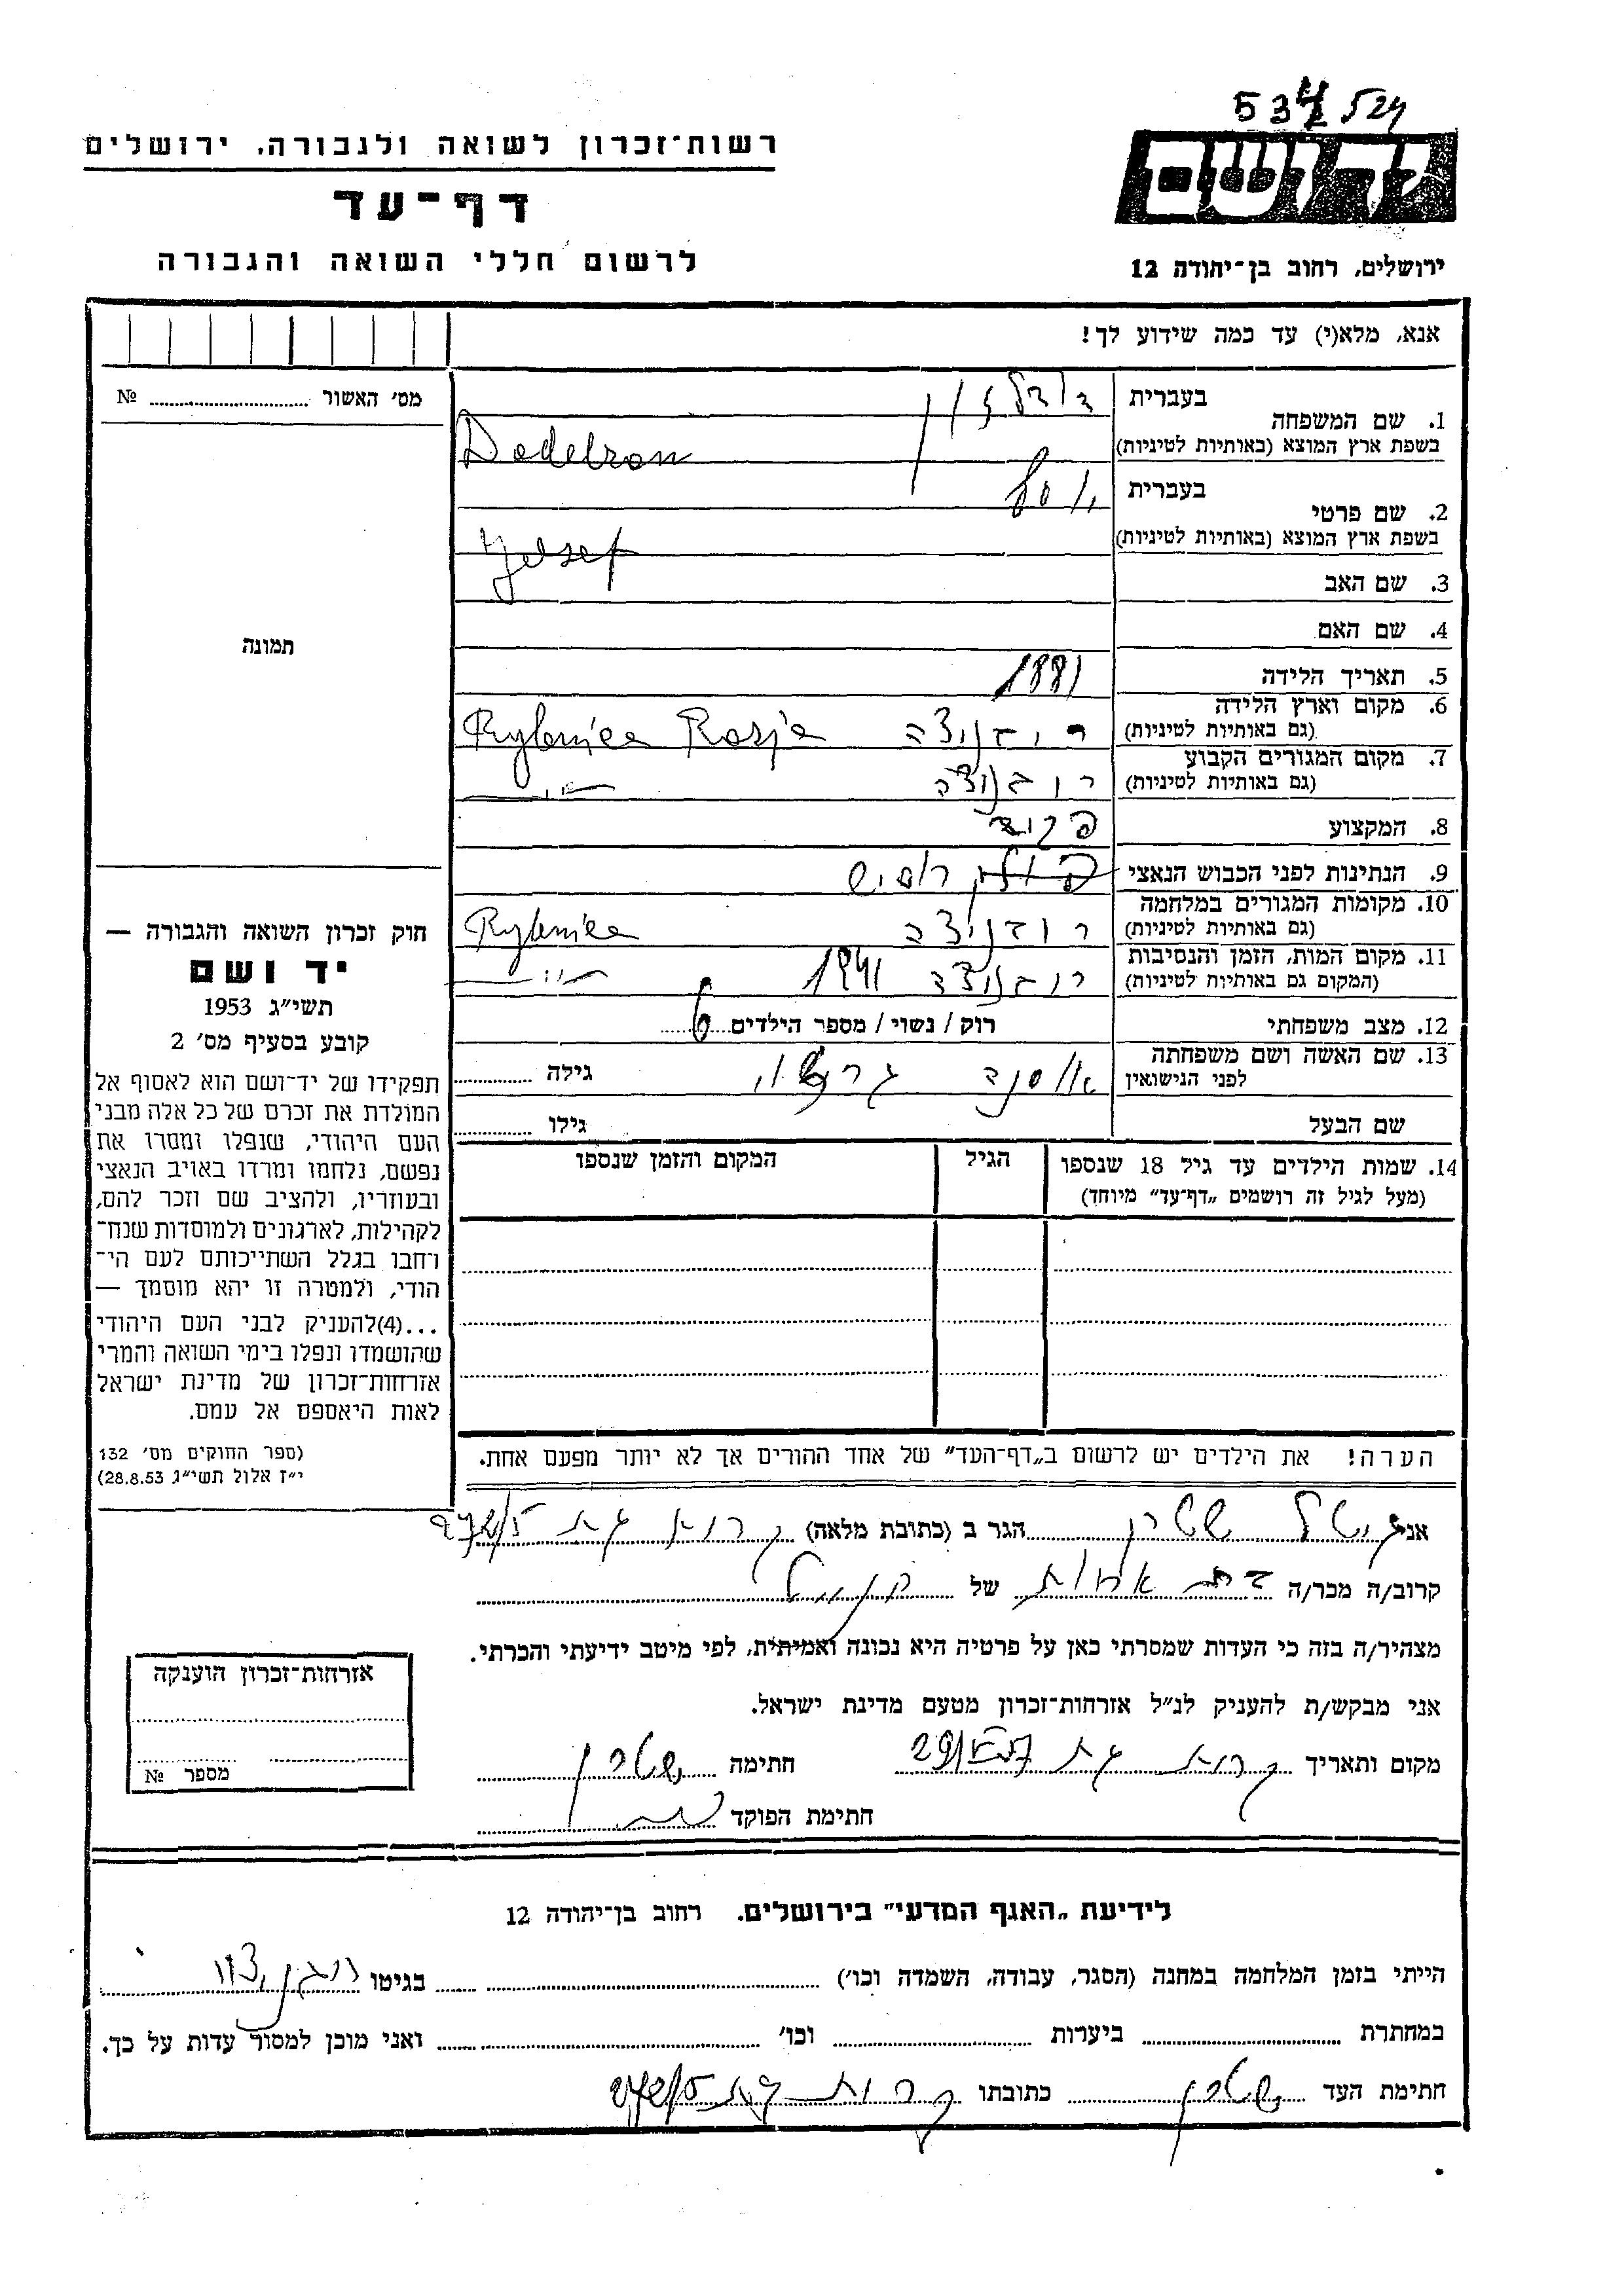 534 524
רשות־זכרון לשואה ולגבורה, ירושלים
יד ושם
דף־עד
לרשום חללי השואה והגבורה
ירושלים, רחוב בן־יהודה 12
אנא, מלא(י) עד כמה שידוע לך!
מס׳ האשור № ..........
1. שם המשפחה
בעברית
בשפת ארץ המוצא (באותיות לטיניות) Dodelzon
2. שם פרטי
בעברית יוסף
בשפת ארץ המוצא (באותיות לטיניות) Josef
3. שם האב
4. שם האם
תמונה
5. תאריך הלידה 1881
6. מקום וארץ הלידה
(גם באותיות לטיניות) Rybnica Rosja
7. מקום המגורים הקבוע
(גם באותיות לטיניות) רובניצה —״—
8. המקצוע פקיד
9. הנתינות לפני הכבוש הנאצי רוסיש
10. מקומות המגורים במלחמה
(גם באותיות לטיניות) Rybnica
11. מקום המות, הזמן והנסיבות
(המקום גם באותיות לטיניות) רובניצה 1941 —״—
12. מצב משפחתי רוק / נשוי / מספר הילדים 6
13. שם האשה ושם משפחתה
לפני הנישואין גילה ..........
שם הבעל גילו ..........
14. שמות הילדים עד גיל 18 שנספו הגיל המקום והזמן שנספו
(מעל לגיל זה רושמים „דף־עד״ מיוחד)
חוק זכרון השואה והגבורה —
יד ושם
תשי״ג 1953
קובע בסעיף מס׳ 2
תפקידו של יד־ושם הוא לאסוף אל
המולדת את זכרם של כל אלה מבני
העם היהודי, שנפלו ומסרו את
נפשם, נלחמו ומרדו באויב הנאצי
ובעוזריו, ולהציב שם וזכר להם,
לקהילות, לארגונים ולמוסדות שנח־
רחבו בגלל השתייכותם לעם הי־
הודי, ולמטרה זו יהא מוסמך —
...(4)להעניק לבני העם היהודי
שהושמדו ונפלו בימי השואה והמרי
אזרחות־זכרון של מדינת ישראל
לאות היאספם אל עמם.
(ספר החוקים מס׳ 132
י״ז אלול תשי״ג 28.8.53)
הערה! את הילדים יש לרשום ב„דף־העד״ של אחד ההורים אך לא יותר מפעם אחת.
אני שטרן הגר ב (כתובת מלאה) קרית גת
קרוב/ה מכר/ה של
מצהיר/ה בזה כי העדות שמסרתי כאן על פרטיה היא נכונה ואמיתית, לפי מיטב ידיעתי והכרתי.
אני מבקש/ת להעניק לנ״ל אזרחות־זכרון מטעם מדינת ישראל.
מקום ותאריך קרית גת חתימה שטרן
חתימת הפוקד
אזרחות־זכרון הוענקה
מספר №
לידיעת „האגף המדעי״ בירושלים. רחוב בן־יהודה 12
הייתי בזמן המלחמה במחנה (הסגר, עבודה, השמדה וכו׳) .......... בגיטו
במחתרת .......... ביערות .......... וכו׳ .......... ואני מוכן למסור עדות על כך.
חתימת העד שטרן כתובתו קרית גת